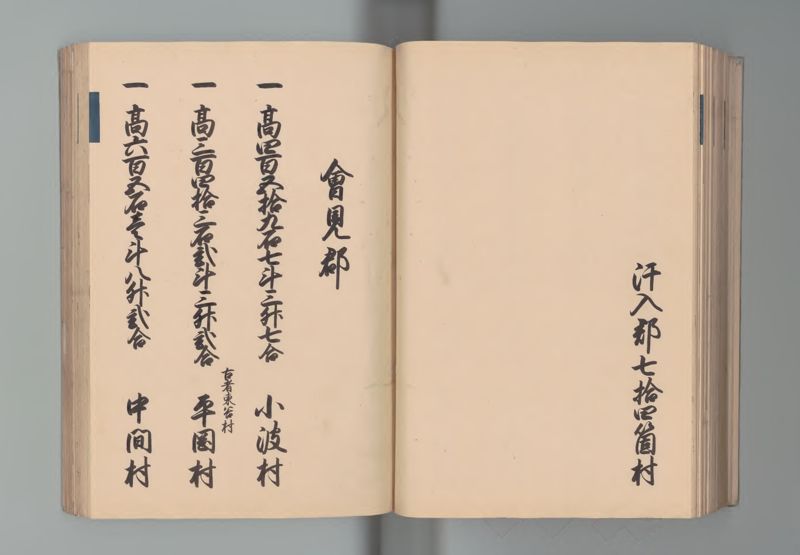 汗入郡七拾四箇村
會見郡
一 高四百五拾九石七斗三升七合 小波村
一 高三百四拾三石貳斗三升貳合 古者東谷村 平岡村
一 高六百五石壱斗八升貳合 中間村